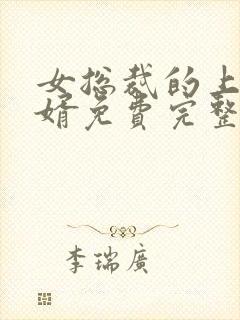 女总裁的上
婿免费完整
李瑞廣